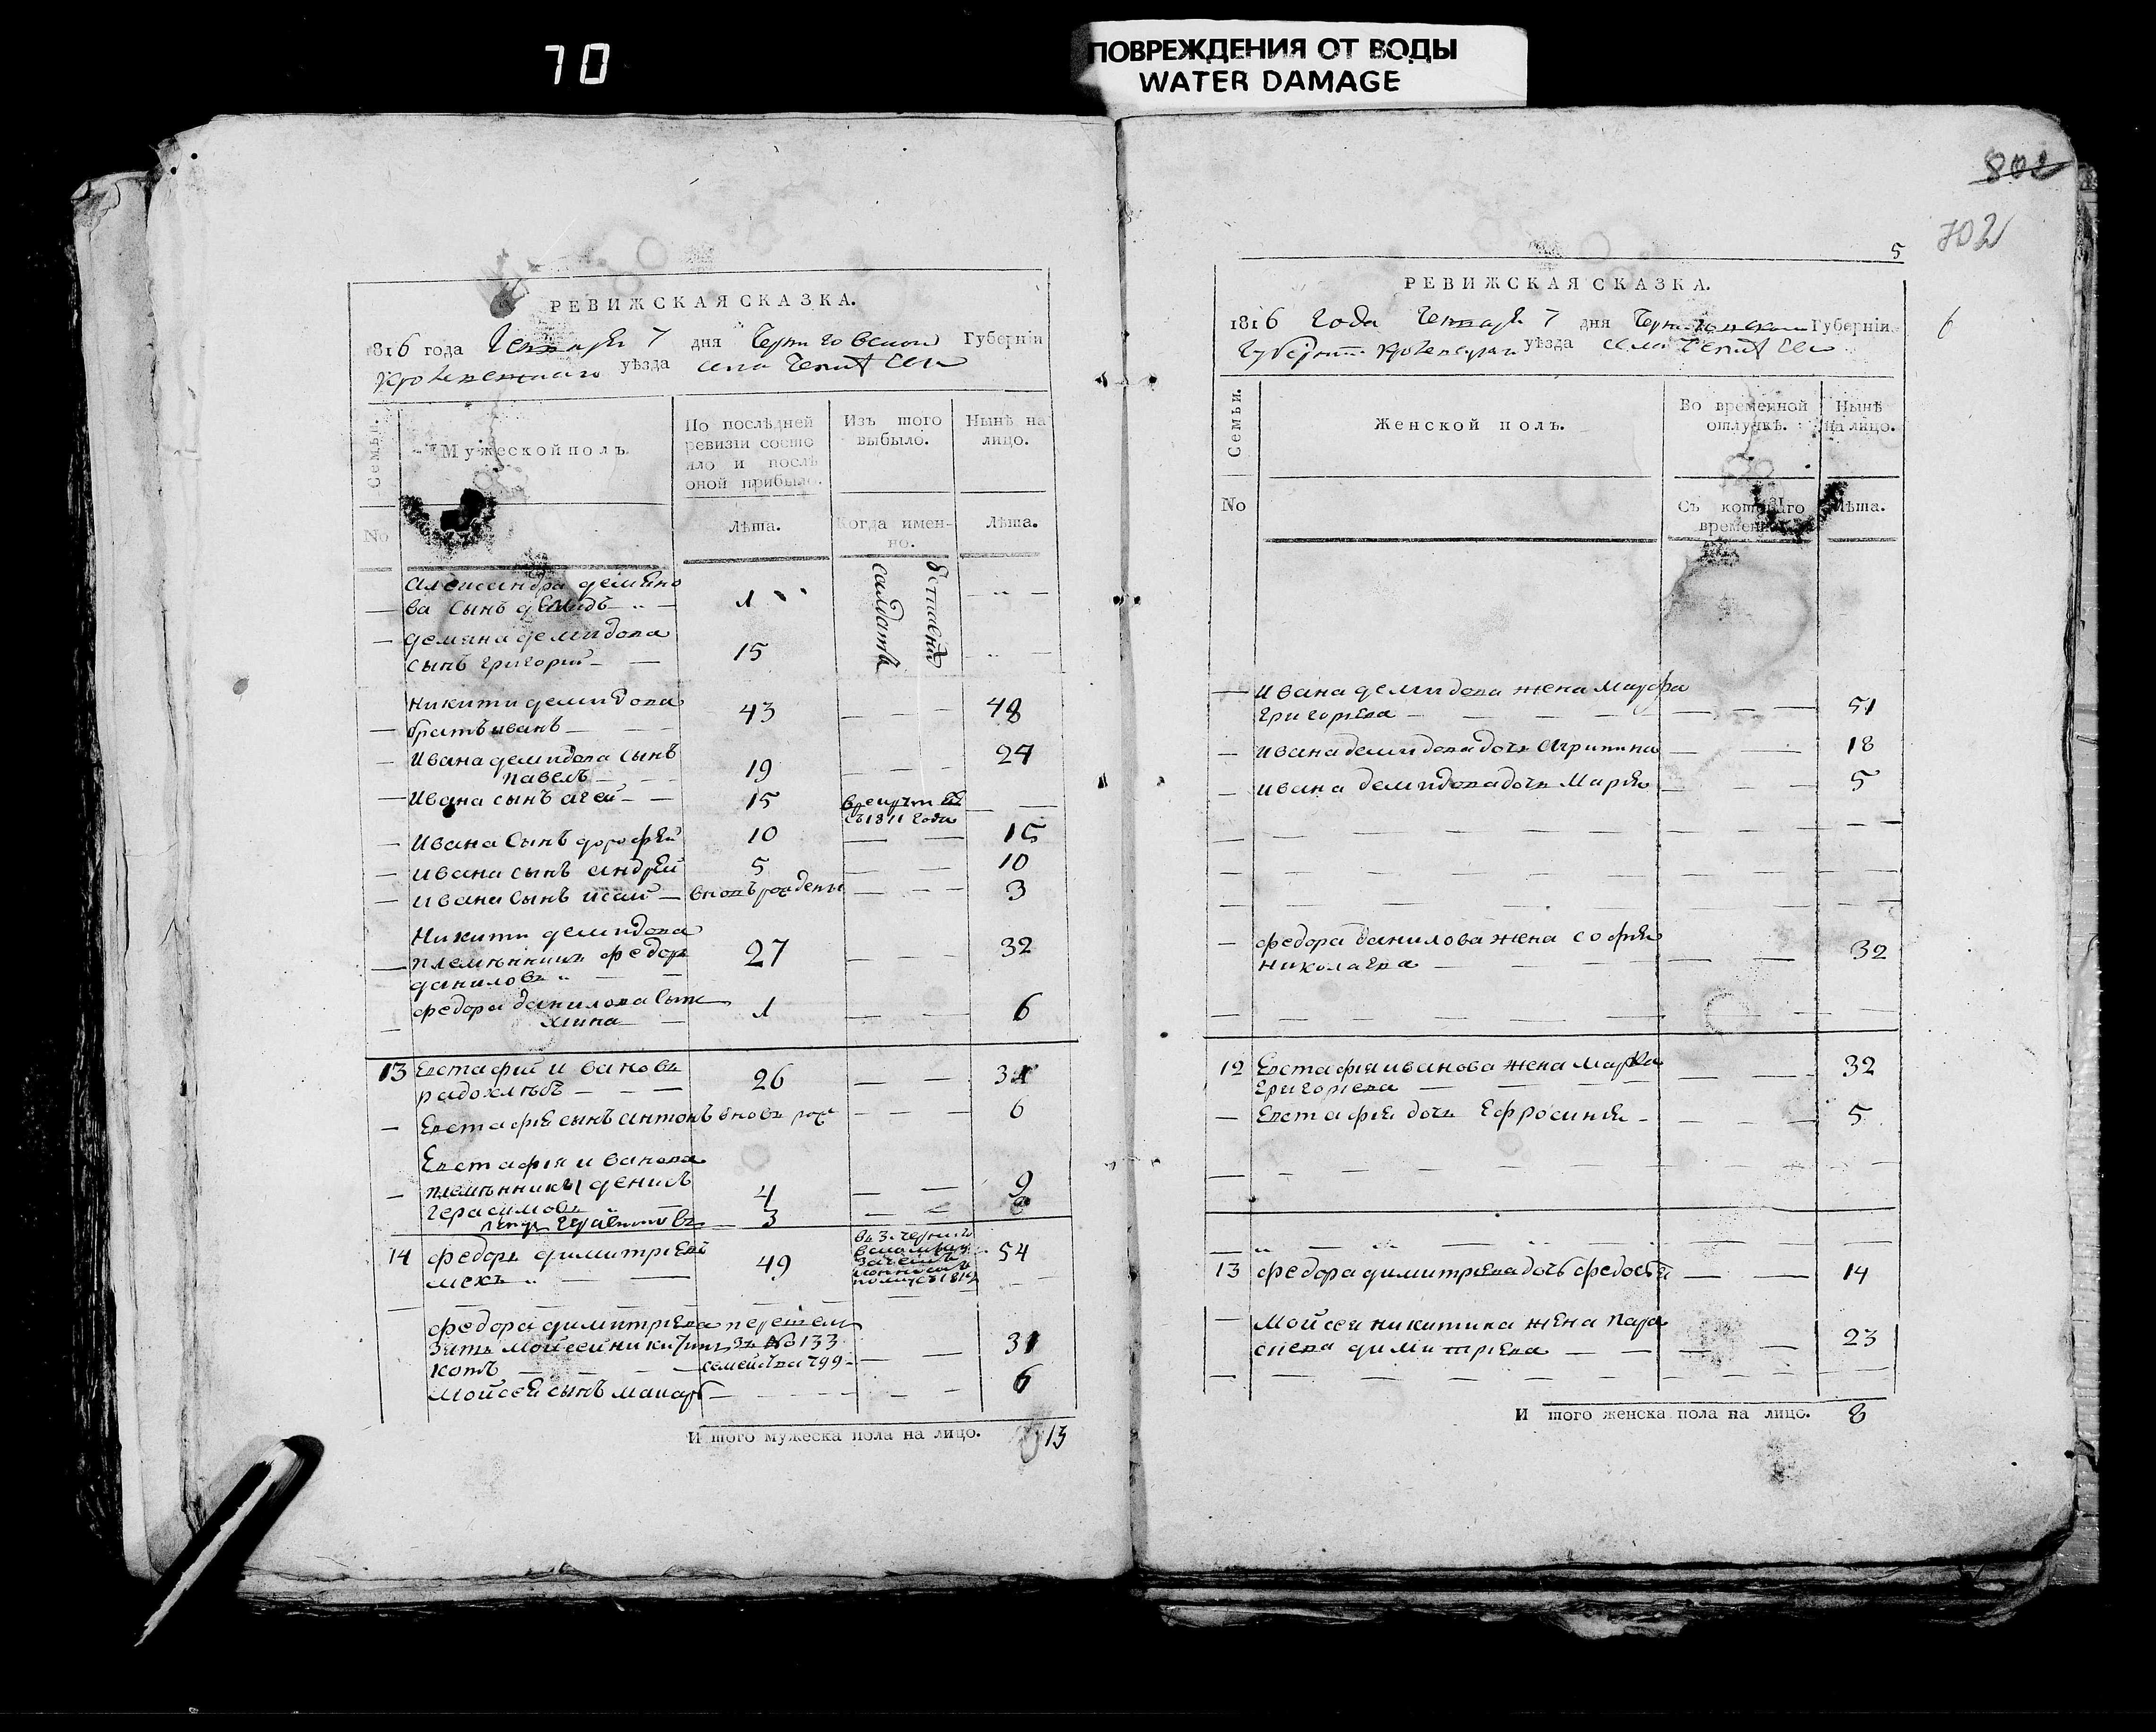 70
ПОВРЕЖДЕНИЯ ОТ ВОДЫ
WATER DAMAGE
РЕВИЖСКАЯ СКАЗКА.
1816 года Генваря 7 дня Черниговской Губерніи
уѣзда села
Семьи.
Мужеской полъ.
По послѣдней
ревизіи состо
яло и послѣ
оной прибыло.
Изъ того
выбыло.
Нынѣ на
лицо.
No
Лѣта.
Когда имен-
но.
Лѣта.
Александра демяно
ва сынъ демидъ 1
демяна демидова
сынъ григорий 15
солдатъ
Никити демидова
братъ иванъ 43 48
Ивана демидова сынъ
павелъ 19 24
Ивана сынъ агей 15
съ 1811 года
Ивана Сынъ дорофѣй 10 15
ивана сынъ андрей 5 10
ивана сынъ исай вновь рожденъ 3
Никити демидова
племѣнникъ федоръ 27 32
даниловъ
федора данилова сынъ 1 6
мина
13 Евстафий ивановъ
26 31
Евстафія сынъ антонъ вновь рож 6
Евстафія иванова
племѣнники денисъ 4 9
герасимовъ
3 8
14 федоръ димитриевъ
49 54
федора димитриева перешел
зять мойсей никитинъ зъ No 133 31
котъ семейства 799
мойсея сынъ макаръ 6
И того мужеска пола на лицо. 13
802
702
5
РЕВИЖСКАЯ СКАЗКА.
1816 года Генваря 7 дня Черниговской Губерніи
уѣзда села
Семьи.
Женской полъ.
Во временной
отлучкѣ.
Нынѣ
на лицо.
No
Съ котораго
времени.
Лѣта.
Ивана демидова жена Марфа
григорева 51
ивана демидова дочь Агрипина 18
ивана демидова дочь Мария 5
федора данилова жена софия
николаева 32
12 Евстафия иванова жена Марфа 32
григорева
Евстафия дочь Ефросиния 5
13 федора димитриева дочь федосия 14
Мойсея никитина жена пара
скева димитриева 23
И того женска пола на лицо. 8